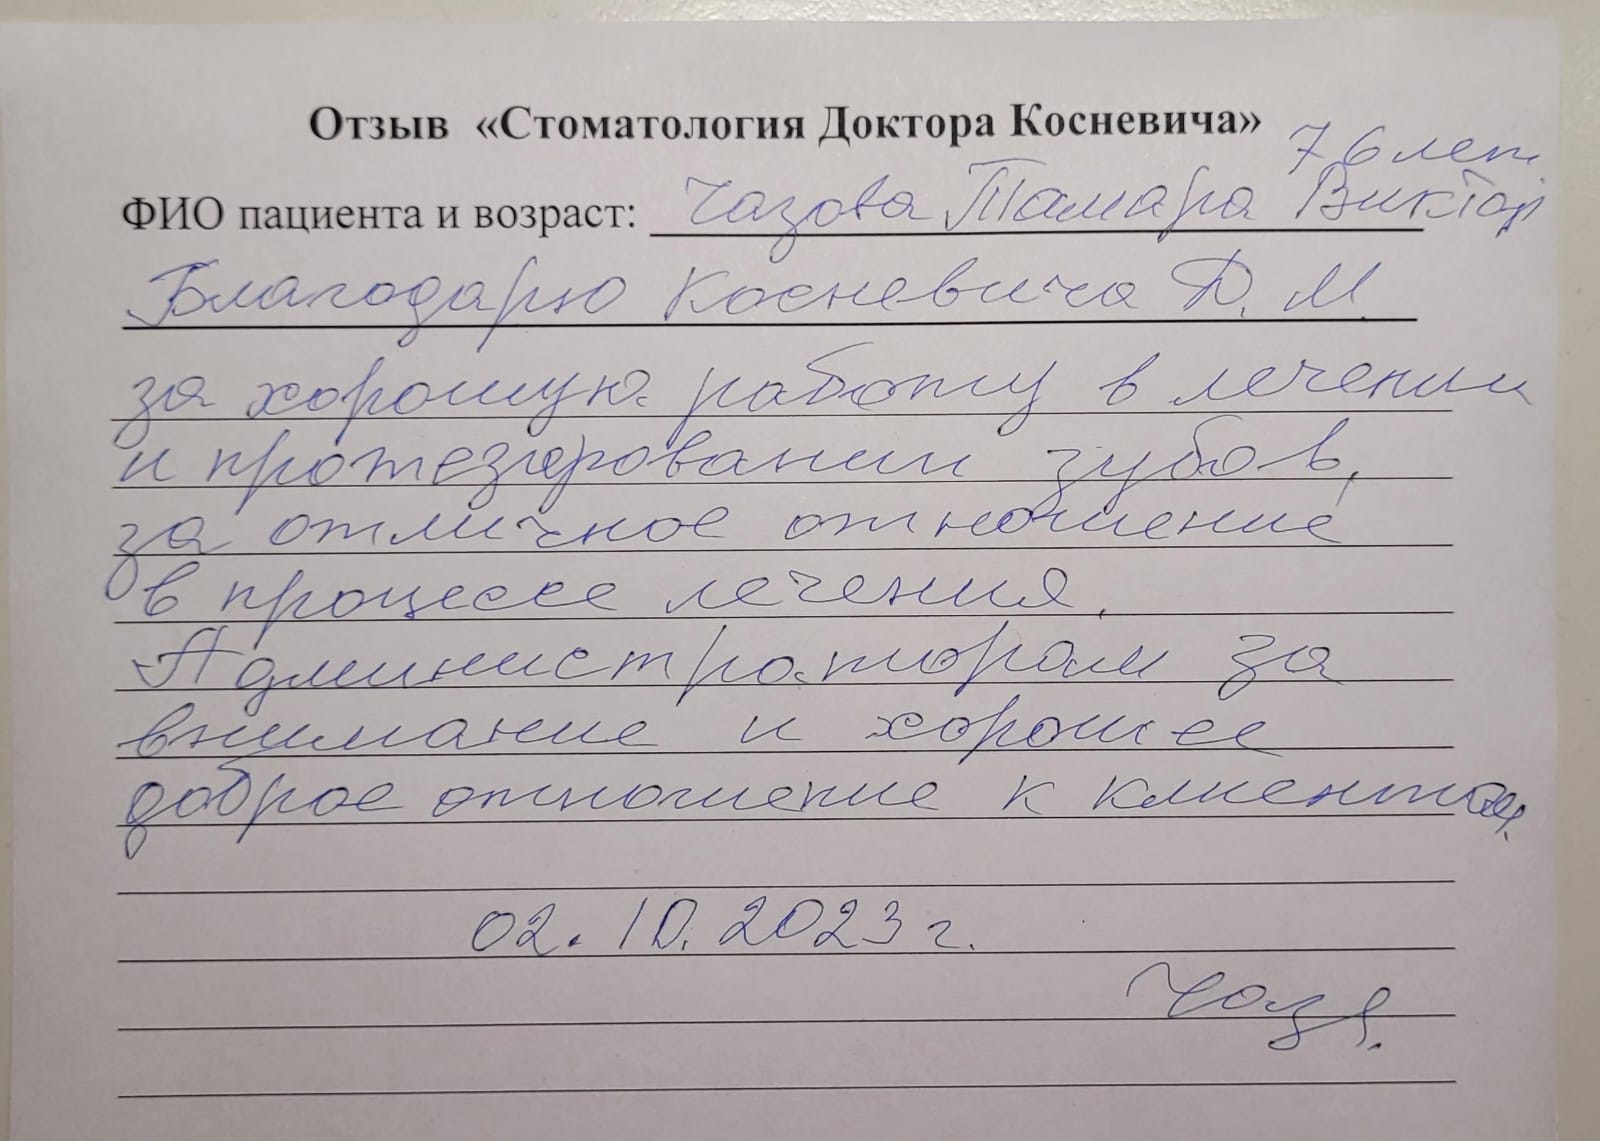 Отзыв «Стоматология Доктора Косневича»
76 лет.
ФИО пациента и возраст: Чазова Тамара Виктор
Благодарю Косневича Д. М.
за хорошую работу в лечении
и протезировании зубов,
за отличное отношение
в процессе лечения.
Администраторам за
внимание и хорошее
доброе отношение к клиентам.
02.10.2023 г.